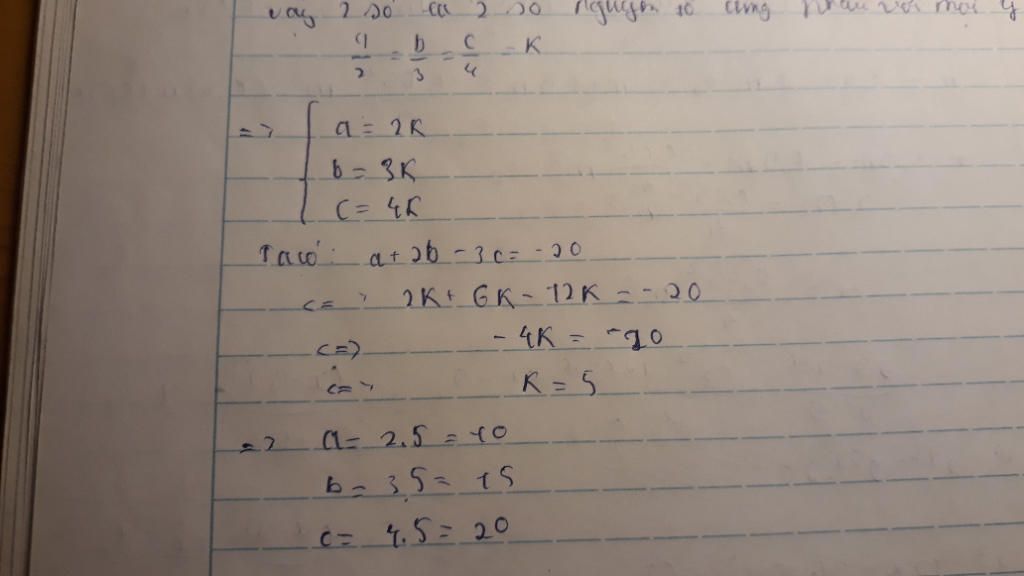 vậy 2 số là 2 số nguyên tố cùng nhau với mọi
a/2 = b/3 = c/4 = K
=> { a = 2K
b = 3K
c = 4K
Ta có: a + 2b - 3c = -20
<=> 2K + 6K - 12K = -20
<=> -4K = -20
<=> K = 5
=> a = 2.5 = 10
b = 3.5 = 15
c = 4.5 = 20